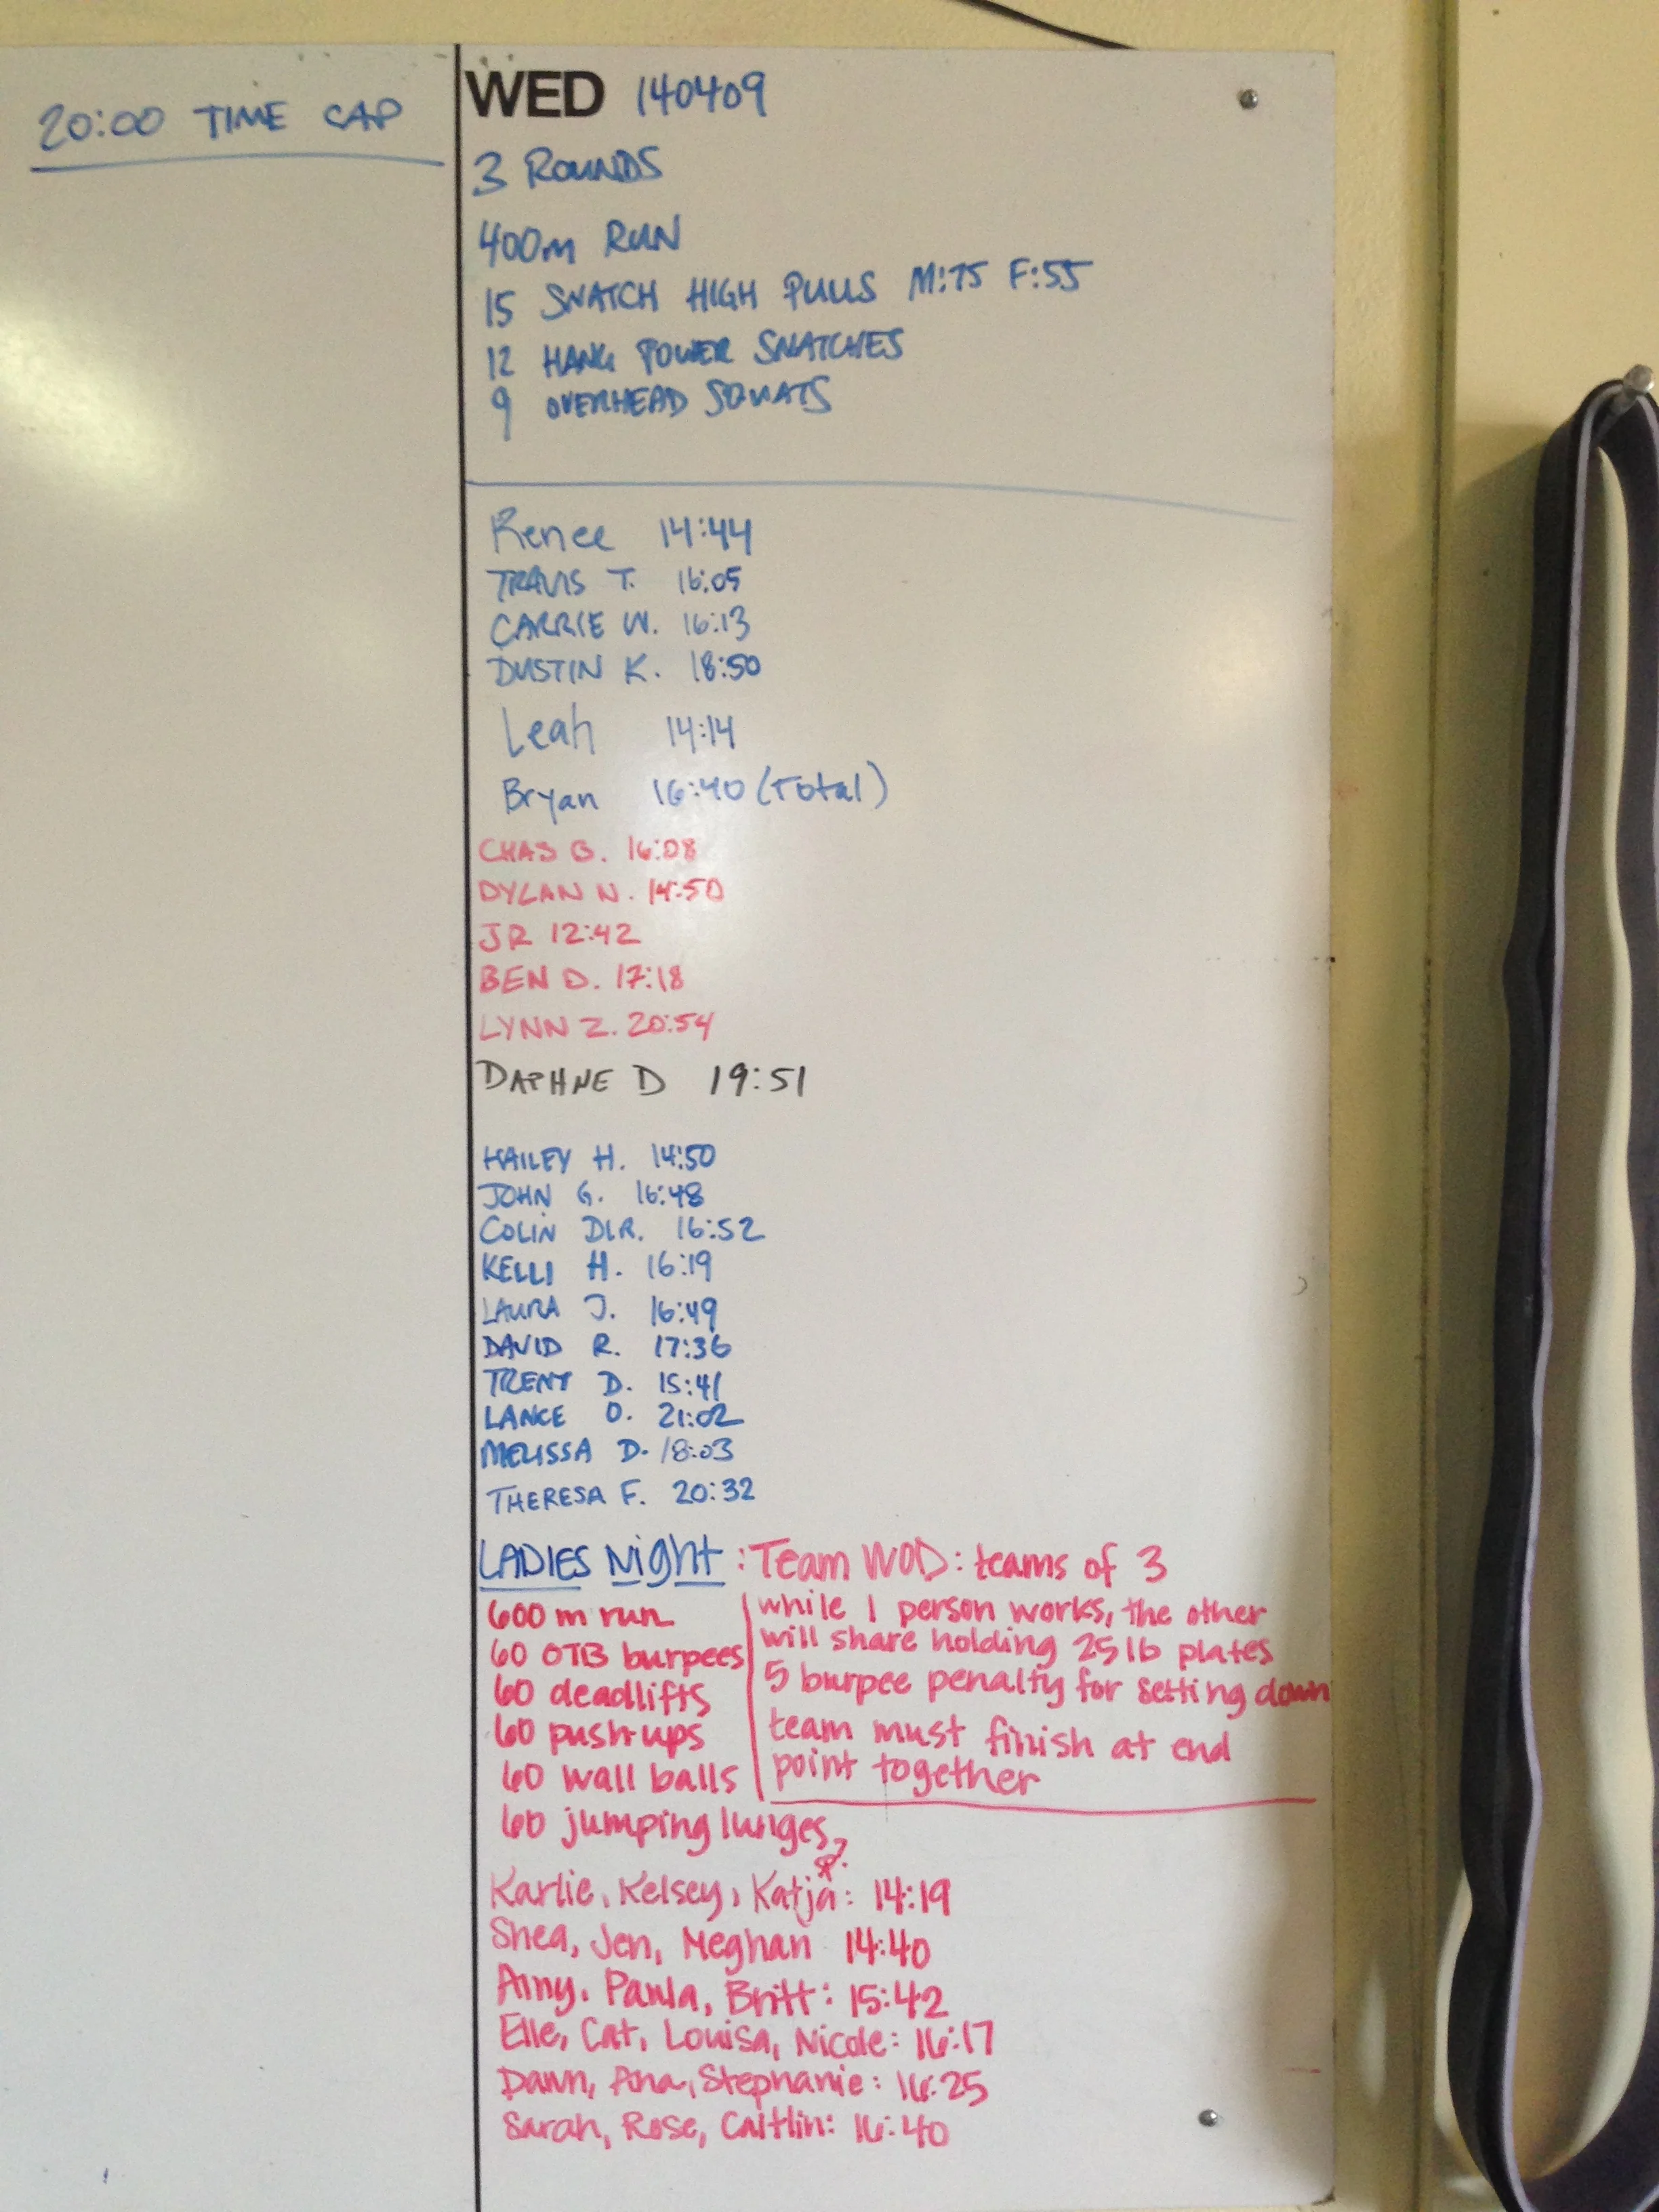 20:00 TIME CAP
WED 140409
3 ROUNDS
400m RUN
15 SNATCH HIGH PULLS M:75 F:55
12 HANG POWER SNATCHES
9 OVERHEAD SQUATS
Renee 14:44
TRAVIS T. 16:05
CARRIE W. 16:13
DUSTIN K. 18:50
Leah 14:14
Bryan 16:40 (Total)
CHAS B. 16:08
DYLAN N. 14:50
JR 12:42
BEN D. 17:18
LYNN Z. 20:54
DAPHNE D 19:51
HAILEY H. 14:50
JOHN G. 16:48
COLIN DLR. 16:52
KELLI H. 16:19
LAURA J. 16:49
DAVID R. 17:36
TRENT D. 15:41
LANCE O. 21:02
MELISSA D. 18:03
THERESA F. 20:32
LADIES Night : Team WOD: teams of 3
600 m run
60 OTB burpees
60 deadlifts
60 push-ups
60 wall balls
60 jumping lunges
while 1 person works, the other
will share holding 25 lb plates
5 burpee penalty for setting down
team must finish at end
point together
Karlie, Kelsey, Katja: 14:19
Shea, Jen, Meghan 14:40
Amy, Paula, Britt: 15:42
Elle, Cat, Louisa, Nicole: 16:17
Dawn, Ana, Stephanie: 16:25
Sarah, Rose, Caitlin: 16:40